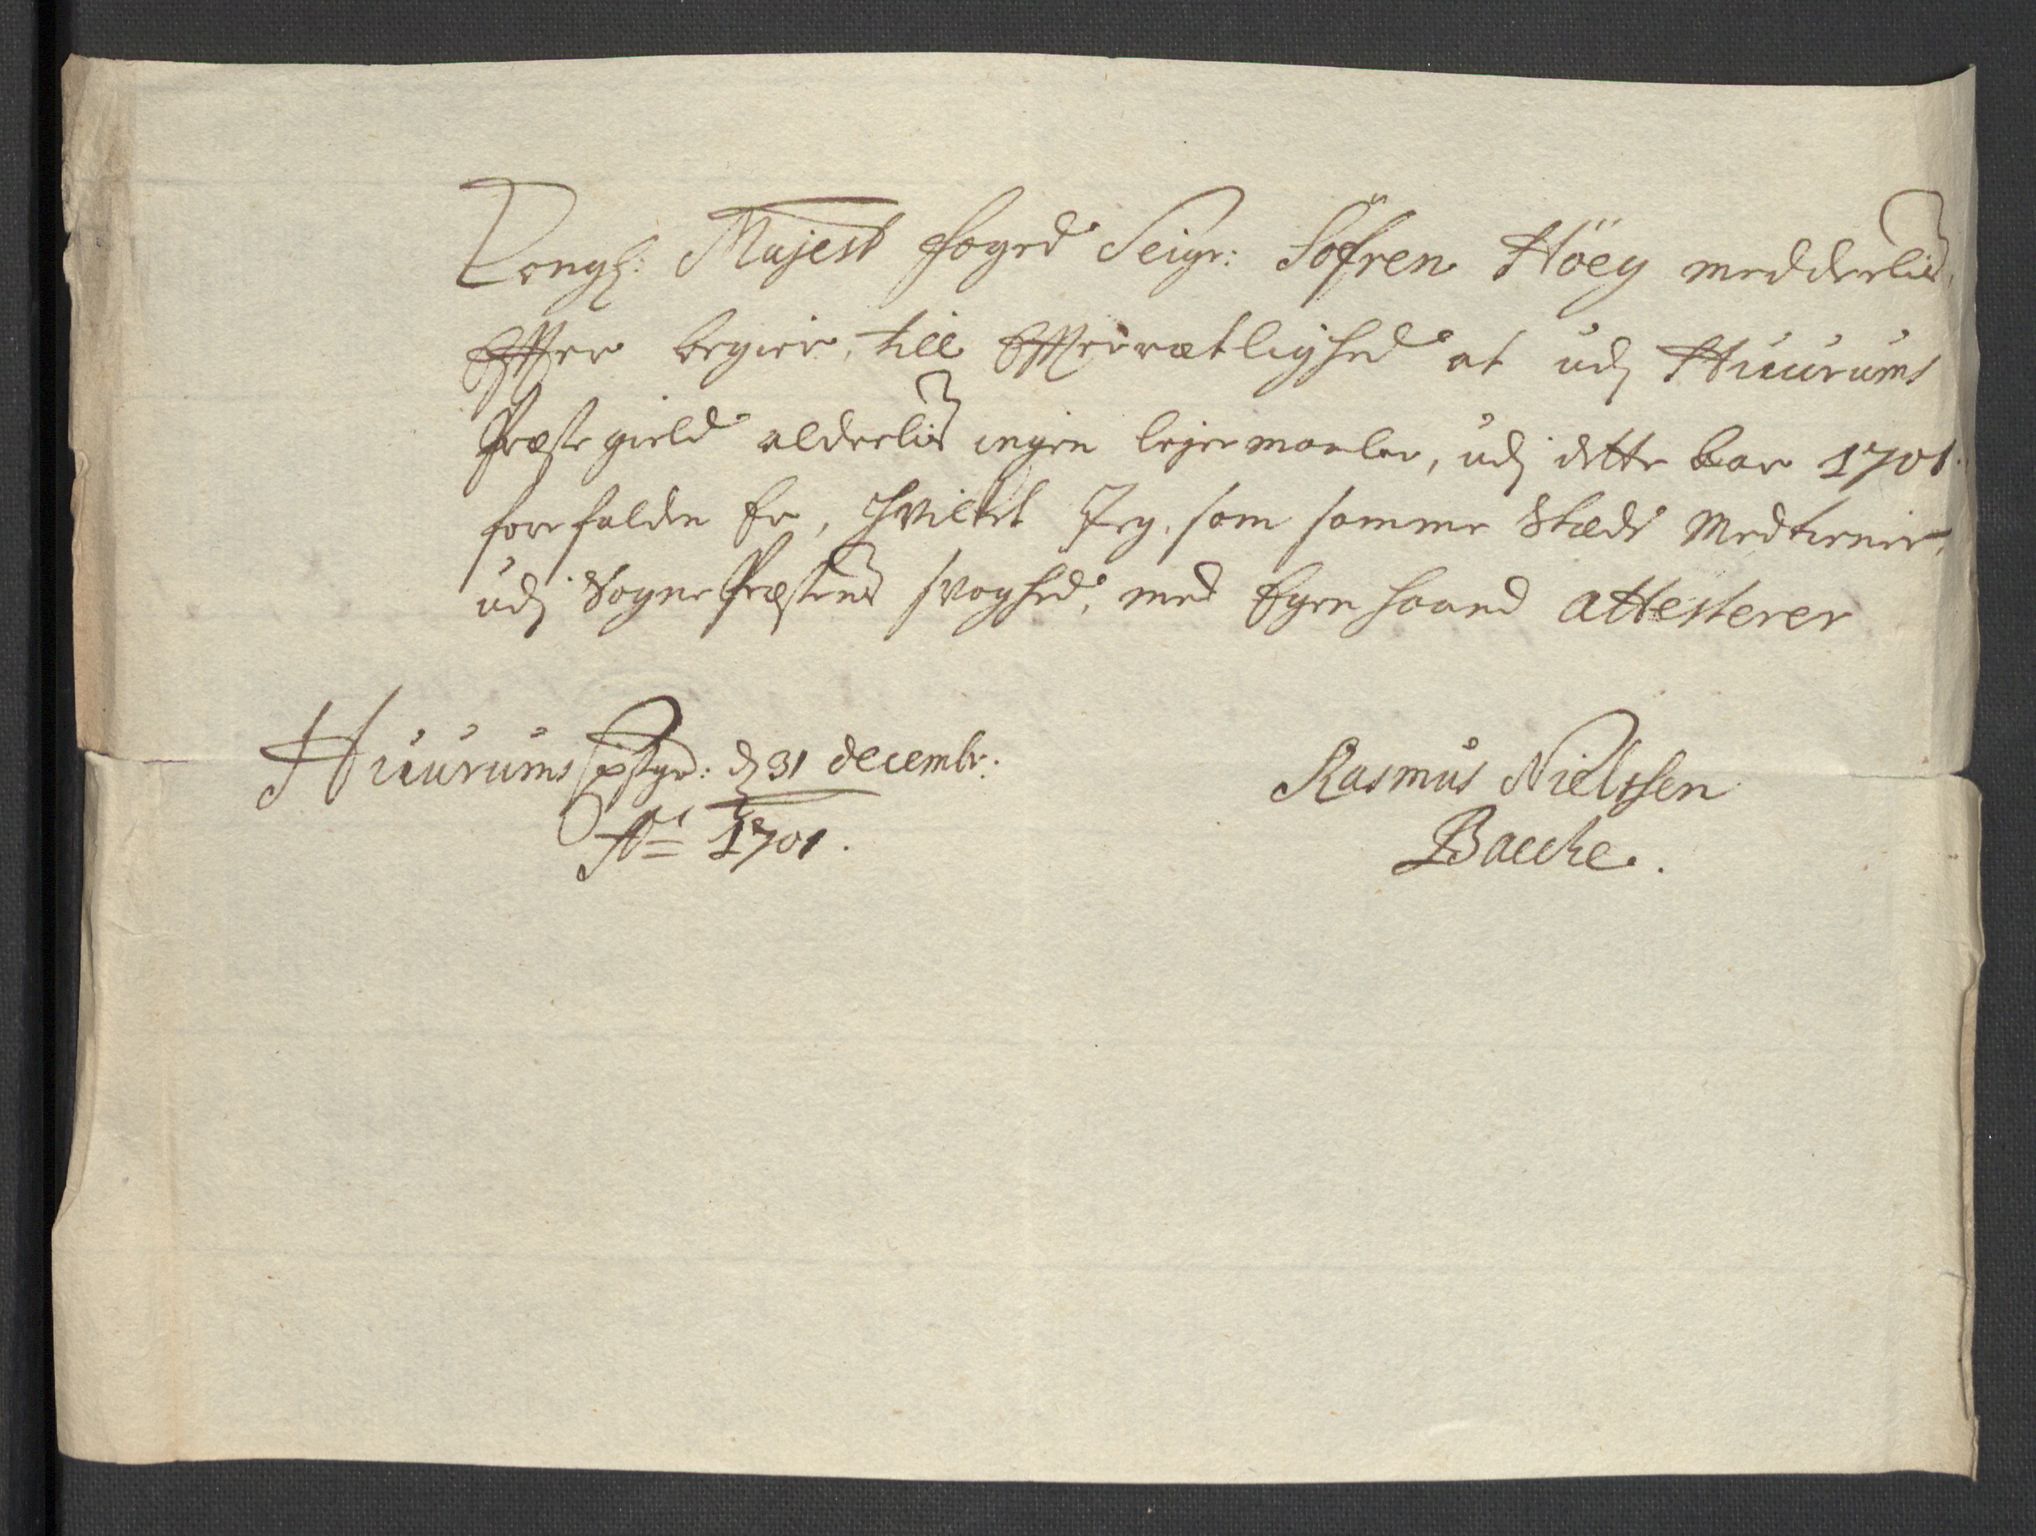 Kongl: Majest foged Seigr: Söfren Höey meddeelis,
Effter begier, till Effterrætlighed at udj Huurums
Præstegield alderlis ingen lejermaaler, udj dette Aar 1701.
forefalden Er, hvilket Jeg, som samme Stæds Medtiener,
udj SognePræstens svaghed, med Egen haand attesterer
Huurums Pstgrd: dj 31 decembr:
Aō 1701.
Rasmus Nielssen
Bacche.